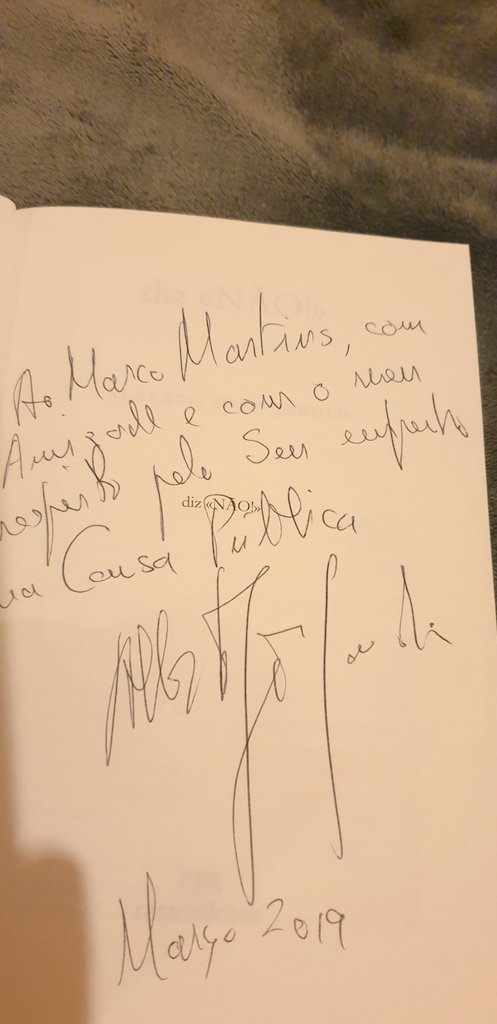 diz «NÃO!»
Ao Marco Martins, com
Amizade e com o meu
respeito pelo Seu empenho
diz «NÃO!»
na Causa Pública
Alberto João Jardim
Março 2019